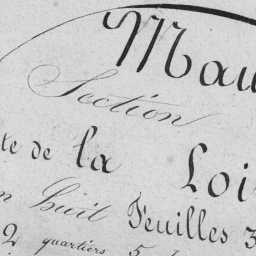 Mau
Section
te de la Loi
n huit Feuilles 3
2 quartiers 5